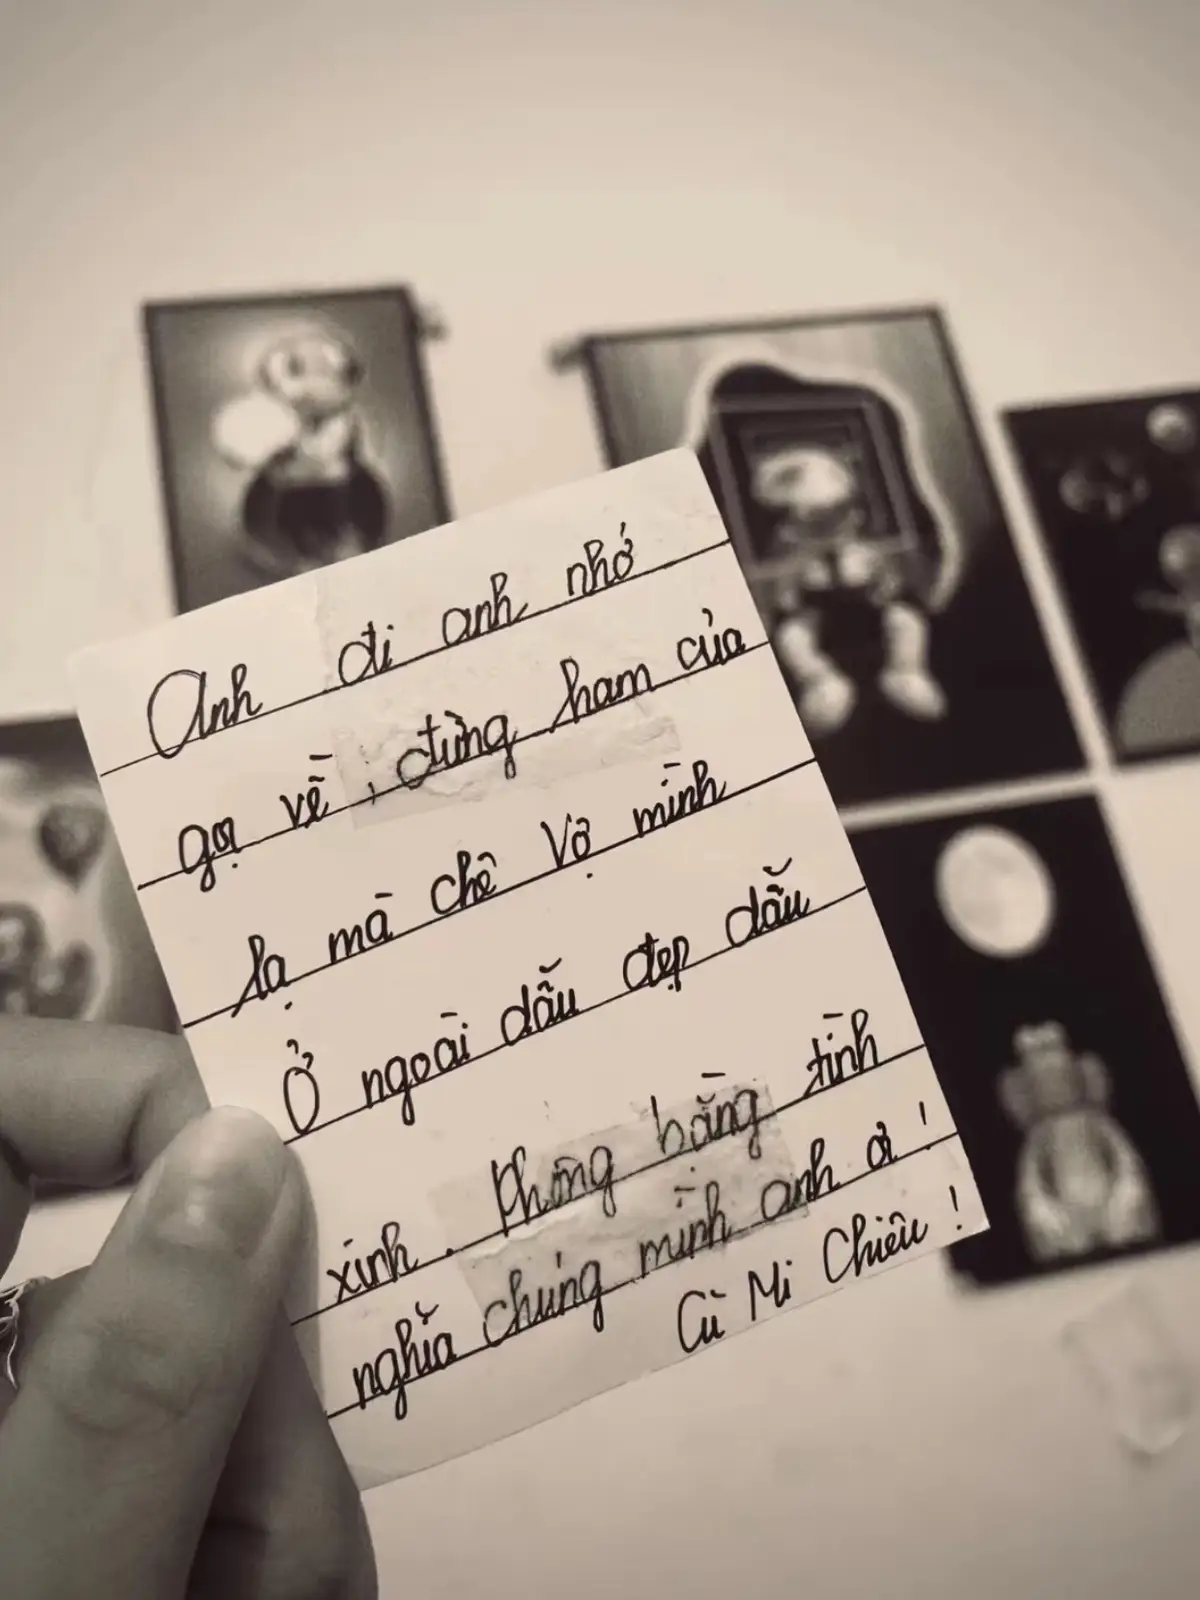 Anh đi anh nhớ
gọi về, đừng ham của
lạ mà chê Vợ mình
Ở ngoài dẫu đẹp dẫu
xinh. Phông bằng tình
nghĩa chúng mình anh ơi!
Cù Mi Chiêu!